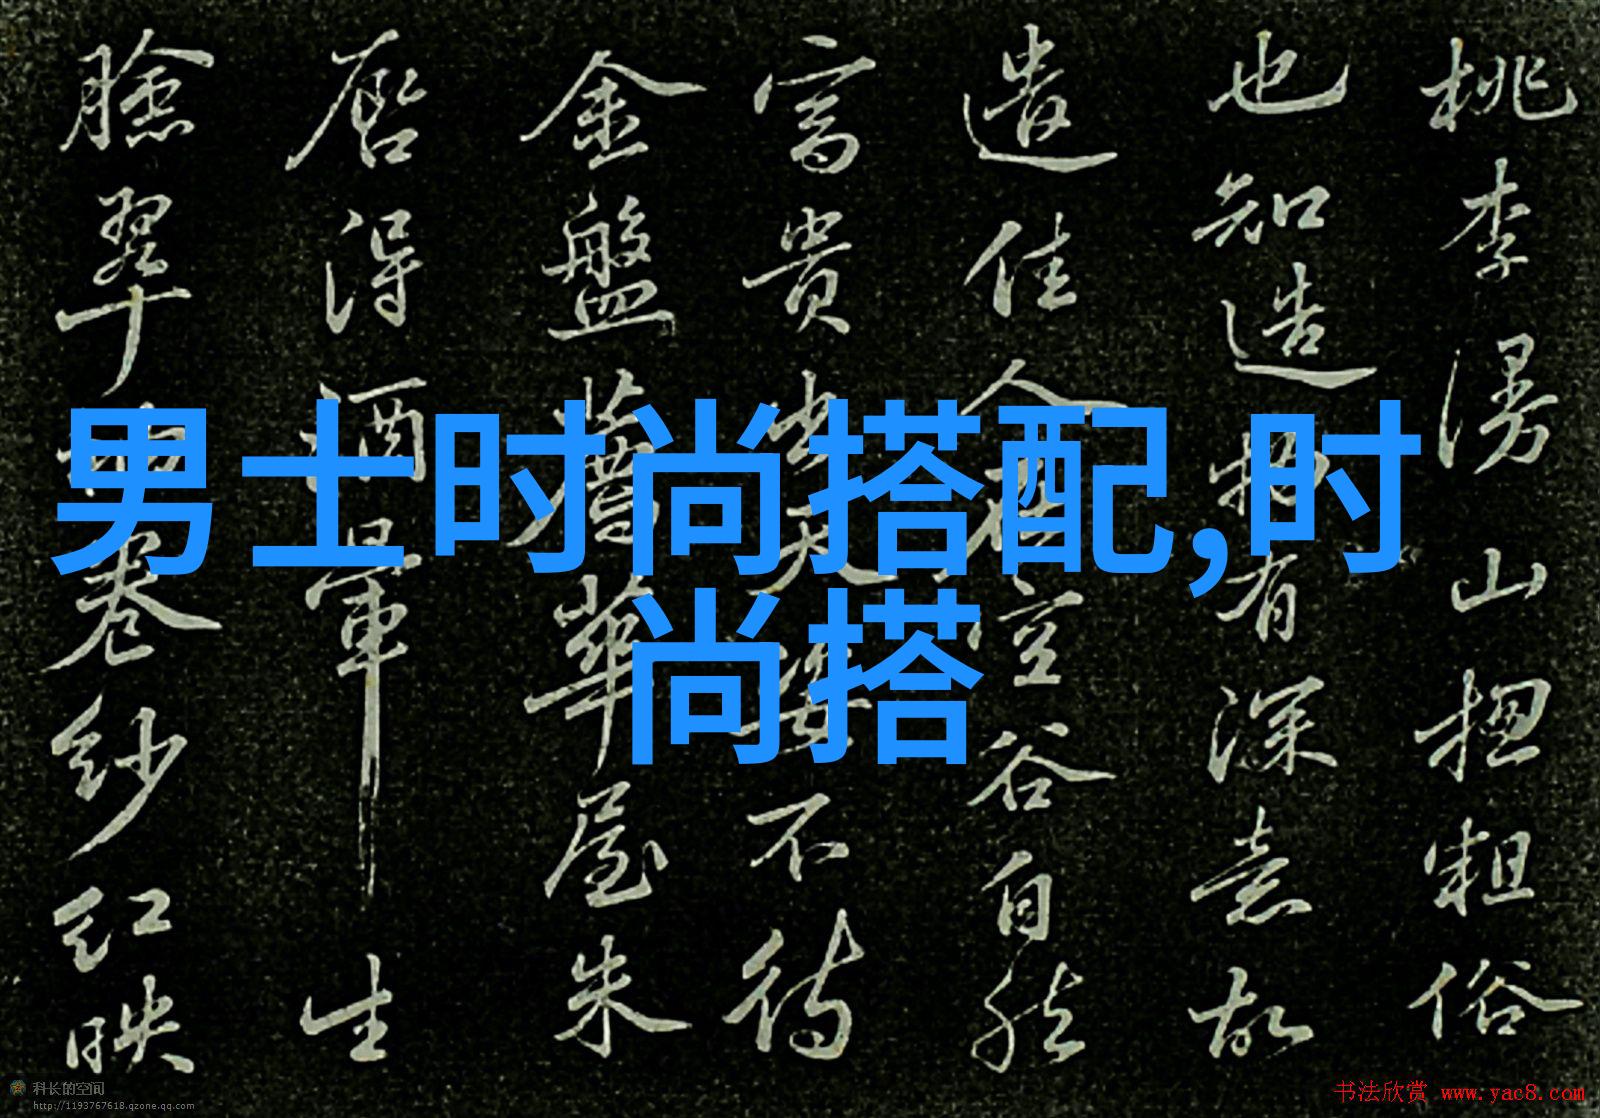 桃李漫山揔粗俗
也知造物有深意故
遣佳人在空谷自然
富貴出天姿不待
金盤薦華屋朱
唇得酒暈生
臉翠袖卷紗紅映
男士时尚搭配,时
尚搭
科长的空间
http://1193767618.qzone.qq.com
书法欣赏 www.yac8.com